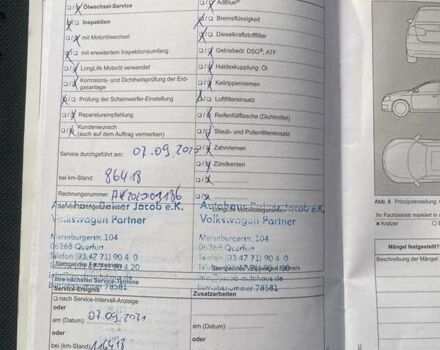 Ölwechsel-Service
AdBlue®
Inspektion
Bremsflüssigkeit
mit Motorölwechsel
Dieselkraftstofffilter
mit erweitertem Inspektionsumfang
Getriebeöl: DSG®, ATF
LongLife Motoröl verwendet
Haldexkupplung: Öl
Korrosions- und Dichtheitsprüfung der Erd-
gasanlage
Keilrippenriemen
Prüfung der Scheinwerfer-Einstellung
Luftfiltereinsatz
Reparaturempfehlung
Reifenfüllflasche (Dichtmittel)
Kundenwunsch
(auch auf dem Auftrag vermerken)
Staub- und Pollenfiltereinsatz
Zahnriemen
Service durchgeführt am: 07.09.2020
Zündkerzen
bei km-Stand: 86418
Rechnungsnummer:
Autohaus Jacob e.K.
Volkswagen Partner
Merseburgerstr. 104
06268 Querfurt
Telefon (03 47 71) 90 4 0
Betriebsnummer 78581
Autohaus Jacob e.K.
Volkswagen Partner
Merseburgerstr. 104
06268 Querfurt
Telefon (03 47 71) 90 4 0
Betriebsnummer 78581
Ihre nächsten Service-Termine
Service-Ereignis
Zusatzarbeiten
nach Service-Intervall-Anzeige
oder
am (Datum) 07.09.2021
am (Datum)
oder
oder
bei (km-Stand) 116418
Abb. 8 Prinzipdarstellung:
Ihr Fachbetrieb markiert in
Kratzer
Mängel festgestellt?
Beschreibung der Mängel: